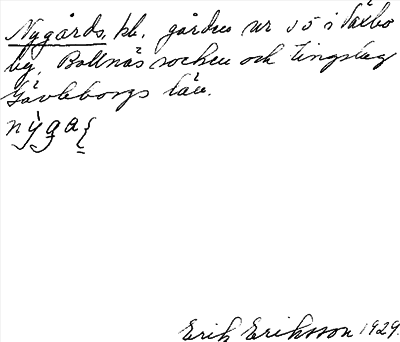 Nygårds, kl. gården nr 15 i Växbo
by, Bollnäs socken och tingslag
Gävleborgs län.
Erik Eriksson 1929.